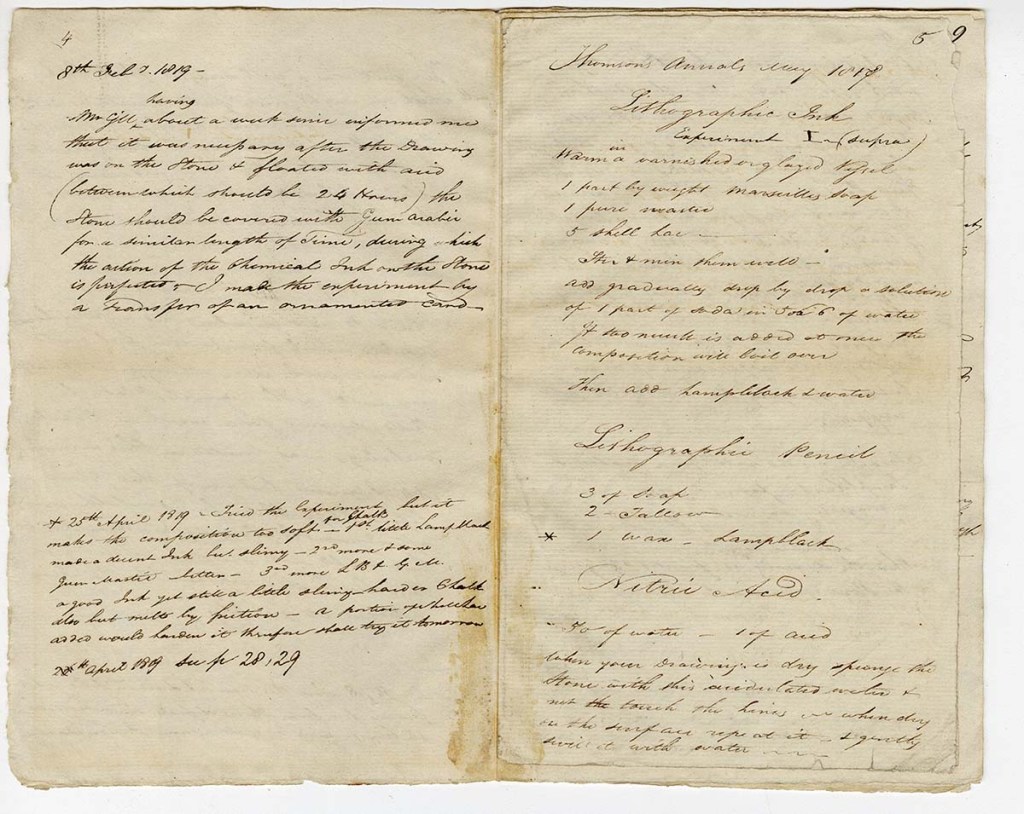 4
8th Feby. 1819 -
having
Mr Gill about a week since informed me
that it was necessary after the Drawing
was on the Stone & floated with acid
(between which should be 24 Hours) the
Stone should be covered with Gum arabic
for a similar length of Time, during which
the action of the Chemical Ink on the Stone
is perfected & I made the experiment by
a Transfer of an ornamented Card
+ 25th April 1819 - Tried the Experiment but it
for Chalk
makes the composition too soft - 1st little Lampblack
made a decent Ink but slimy - 2nd more & some
Gum Mastic better - 3rd more LB & G M.
a good Ink yet still a little slimy harder Chalk
also but melts by friction - a portion of Shellac
added would harden it therefore shall try it tomorrow
26th April 1819 See p 28, 29
5 9
Thomsons Annals May 1818
Lithographic Ink
Experiment I - (supra)
in
Warm a varnished or glazed Vessel
1 part by weight Marseilles Soap
1 pure mastic
5 shell lac
Stir & mix them well -
add gradually drop by drop a solution
of 1 part of Soda in 5 or 6 of water
If too much is added at once the
composition will boil over
Then add Lampblack & water
Lithographic Pencil
3 of Soap
2 - Tallow
* 1 Wax - Lampblack
Nitric Acid.
50 of water - 1 of acid
When your Drawing is dry sponge the
Stone with this acidulated water &
not the touch the lines - when dry
on the surface repeat it - & gently
it with water